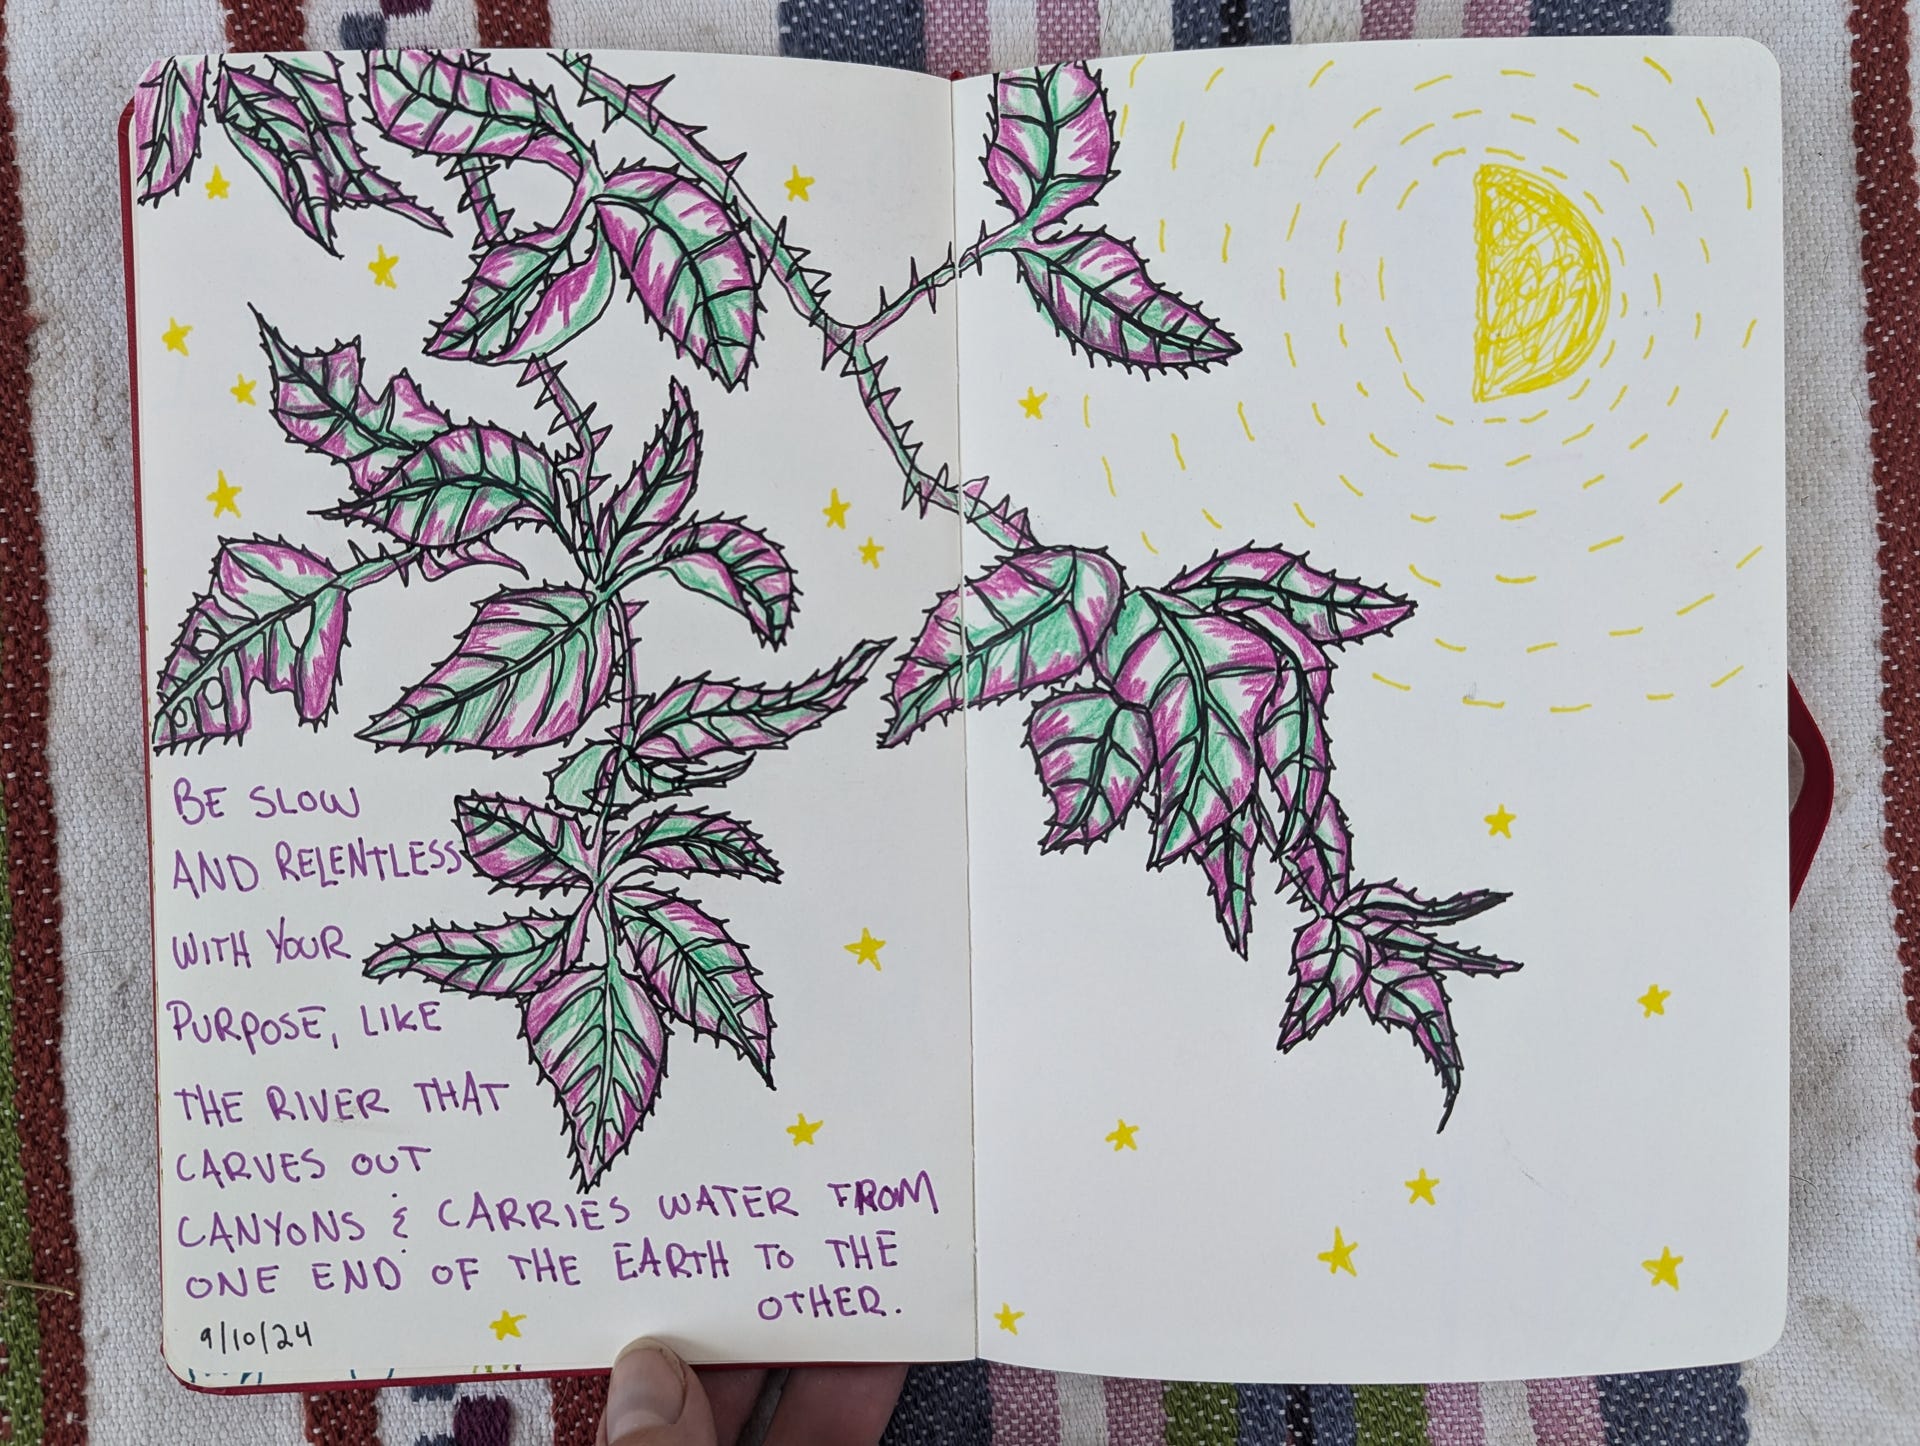 BE SLOW
AND RELENTLESS
WITH YOUR
PURPOSE, LIKE
THE RIVER THAT
CARVES OUT
CANYONS & CARRIES WATER FROM
ONE END OF THE EARTH TO THE
OTHER.
9/10/24